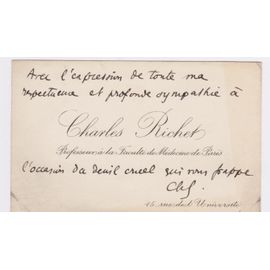 Avec l'expression de toute ma
respectueuse et profonde sympathie à
Charles Richet
Professeur à la Faculté de Médecine de Paris
l'occasion du deuil cruel qui vous frappe
15 rue de l'Université